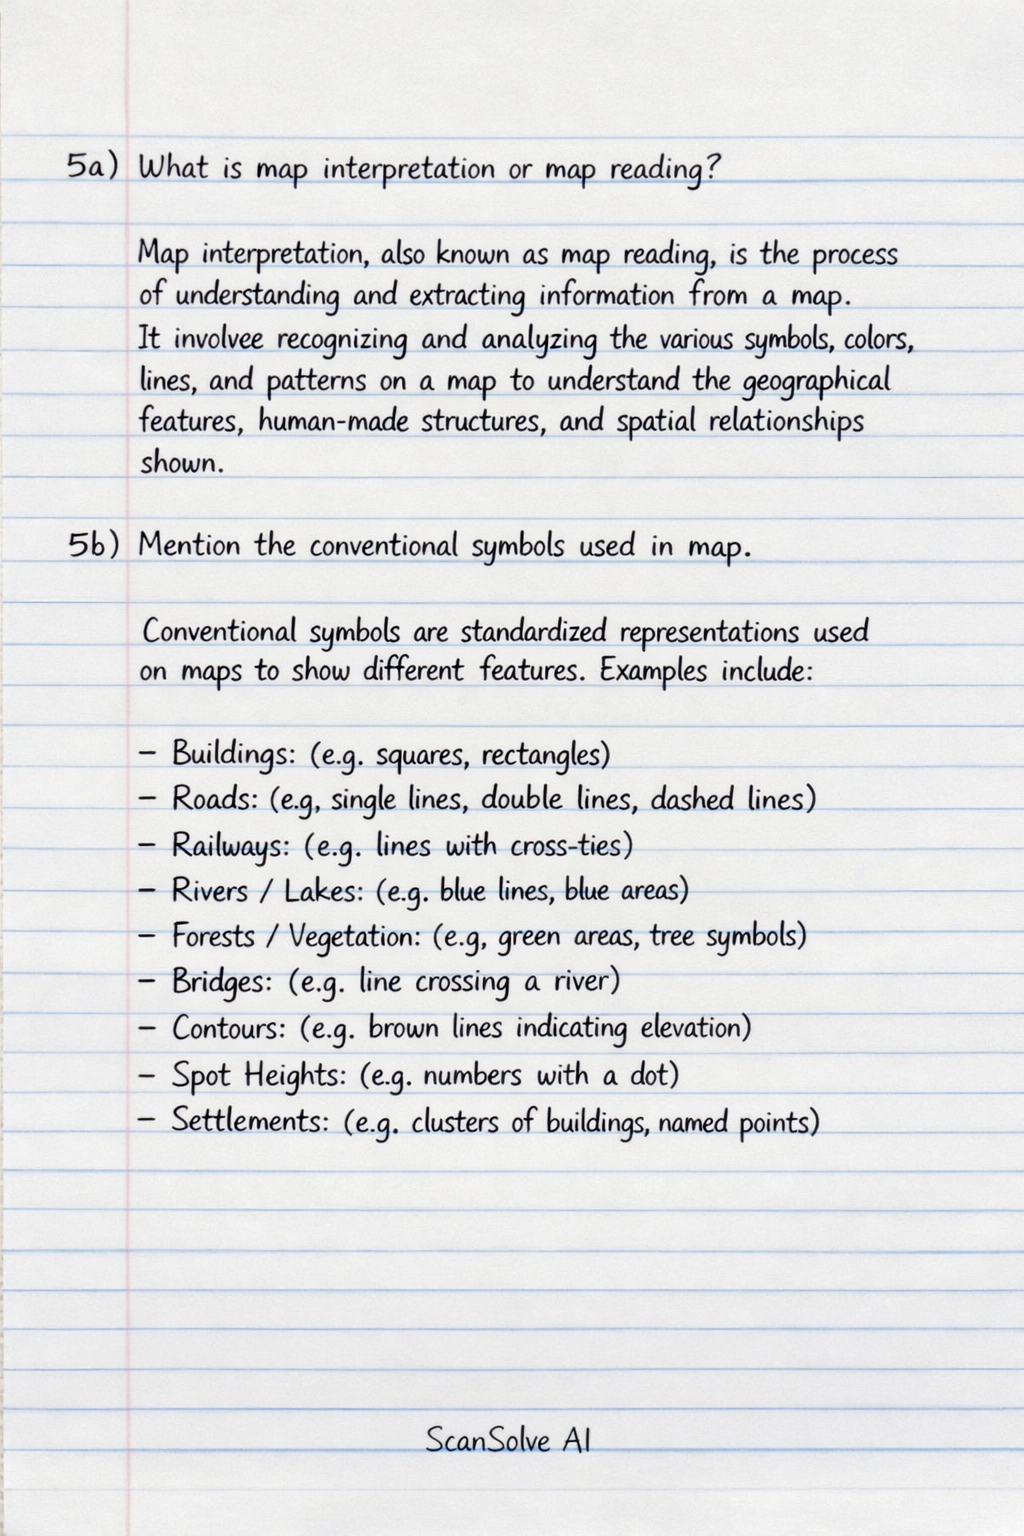 5a) What is map interpretation or map reading?
Map interpretation, also known as map reading, is the process
of understanding and extracting information from a map.
It involvee recognizing and analyzing the various symbols, colors,
lines, and patterns on a map to understand the geographical
features, human-made structures, and spatial relationships
shown.
5b) Mention the conventional symbols used in map.
Conventional symbols are standardized representations used
on maps to show different features. Examples include:
– Buildings: (e.g. squares, rectangles)
– Roads: (e.g, single lines, double lines, dashed lines)
– Railways: (e.g. lines with cross-ties)
– Rivers / Lakes: (e.g. blue lines, blue areas)
– Forests / Vegetation: (e.g, green areas, tree symbols)
– Bridges: (e.g. line crossing a river)
– Contours: (e.g. brown lines indicating elevation)
– Spot Heights: (e.g. numbers with a dot)
– Settlements: (e.g. clusters of buildings, named points)
ScanSolve AI